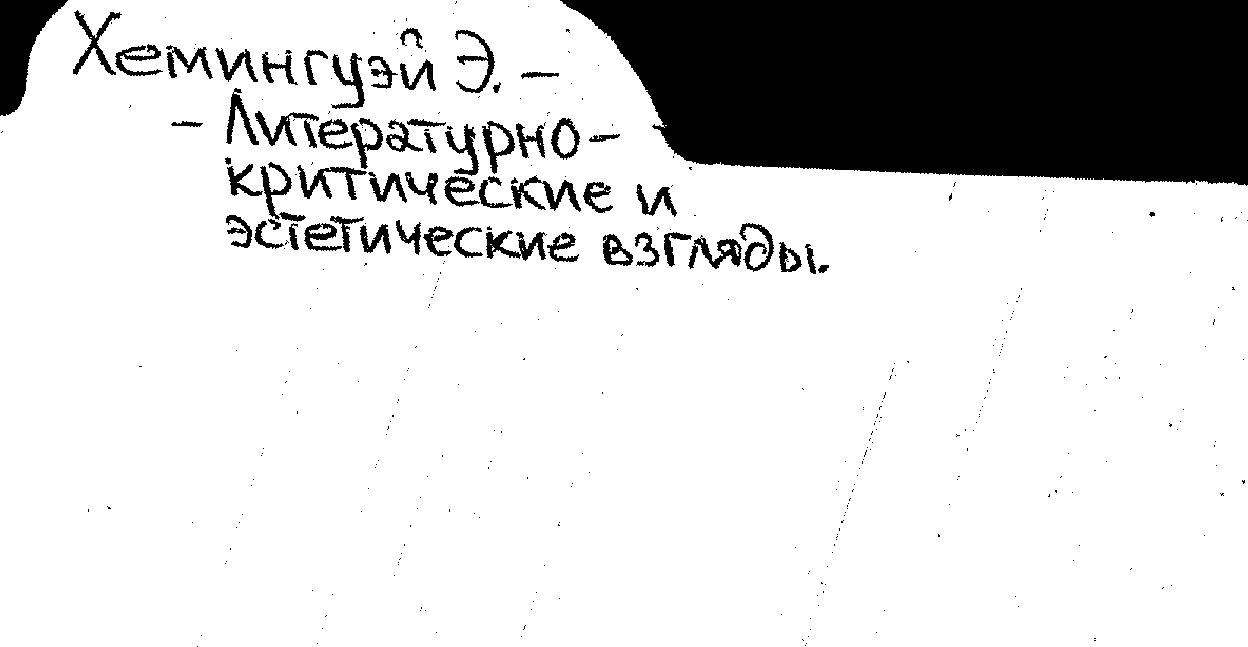 Хемингуэй Э. –
– Литературно-
критические и
эстетические взгляды.